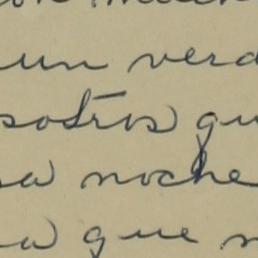 un verd
sotros qu
sa noche
a que n